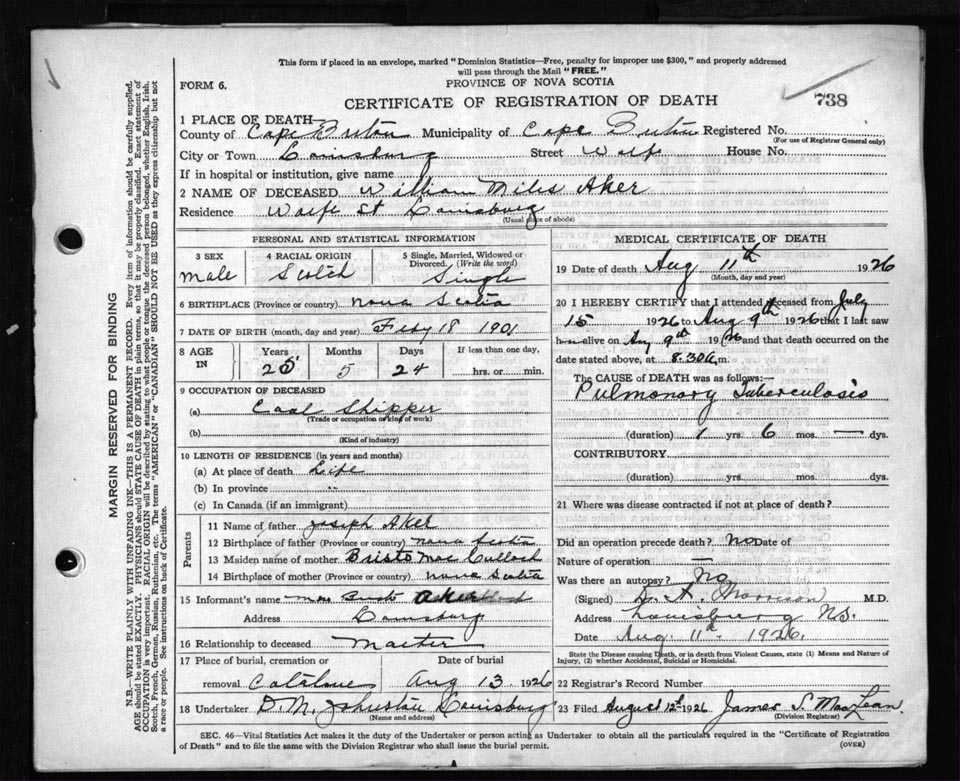 This form if placed in an envelope, marked "Dominion Statistics—Free, penalty for improper use $300," and properly addressed
will pass through the Mail "FREE."
FORM 6.
PROVINCE OF NOVA SCOTIA
CERTIFICATE OF REGISTRATION OF DEATH
738
1 PLACE OF DEATH—
County of Cape Breton Municipality of Cape Breton Registered No.
(For use of Registrar General only)
City or Town Louisburg Street Wolfe House No.
If in hospital or institution, give name
2 NAME OF DECEASED William Miles Aker
Residence Wolfe St Louisburg
(Usual place of abode)
PERSONAL AND STATISTICAL INFORMATION
3 SEX
male
4 RACIAL ORIGIN
Scotch
5 Single, Married, Widowed or
Divorced. (Write the word)
Single
6 BIRTHPLACE (Province or country) Nova Scotia
7 DATE OF BIRTH (month, day and year) Feby 18 1901
8 AGE
IN
Years
25
Months
5
Days
24
If less than one day,
hrs. or min.
9 OCCUPATION OF DECEASED
(a) Coal Shipper
(Trade or occupation or kind of work)
(b)
(Kind of industry)
10 LENGTH OF RESIDENCE (in years and months)
(a) At place of death Life
(b) In province
(c) In Canada (if an immigrant)
Parents
11 Name of father Joseph Aker
12 Birthplace of father (Province or country) Nova Scotia
13 Maiden name of mother Bristo Mac Culloch
14 Birthplace of mother (Province or country) Nova Scotia
15 Informant's name Mrs Aker
Address Louisburg
16 Relationship to deceased Mother
17 Place of burial, cremation or
removal Catalone
Date of burial
Aug 13 1926
18 Undertaker D. M. Johnston Louisburg
(Name and address)
MEDICAL CERTIFICATE OF DEATH
19 Date of death Aug 11th 1926
(Month, day and year)
20 I HEREBY CERTIFY that I attended deceased from July
15 1926 to Aug 9th 1926 that I last saw
him alive on Aug 9th 1926 and that death occurred on the
date stated above, at 8.30 a.m.
The CAUSE OF DEATH was as follows:—
Pulmonary Tuberculosis
(duration) 1 yrs. 6 mos. — dys.
CONTRIBUTORY
(duration) yrs. mos. dys.
21 Where was disease contracted if not at place of death?
Did an operation precede death? No Date of
Nature of operation —
Was there an autopsy? No
(Signed) D. A. Morrison M.D.
Address Louisburg N.S.
Date Aug. 11th 1926.
State the Disease causing Death, or in death from Violent Causes, state (1) Means and Nature of
Injury, (2) whether Accidental, Suicidal or Homicidal.
22 Registrar's Record Number
23 Filed August 12th 1926 James S. MacLean.
(Division Registrar)
SEC. 46—Vital Statistics Act makes it the duty of the Undertaker or person acting as Undertaker to obtain all the particulars required in the "Certificate of Registration
of Death" and to file the same with the Division Registrar who shall issue the burial permit.
(OVER)
MARGIN RESERVED FOR BINDING
N.B.—WRITE PLAINLY WITH UNFADING INK—THIS IS A PERMANENT RECORD. Every item of information should be carefully supplied.
AGE should be stated EXACTLY. PHYSICIANS should STATE CAUSE OF DEATH in plain terms, so that it may be properly classified. Exact statement of
OCCUPATION is very important. RACIAL ORIGIN will be described by stating to what people or tongue the deceased person belonged, whether English, Irish,
Scotch, French, German, Russian, Ruthenian, etc. The terms "AMERICAN" or "CANADIAN" SHOULD NOT BE USED as they express citizenship but not
a race or people. See instructions on back of Certificate.